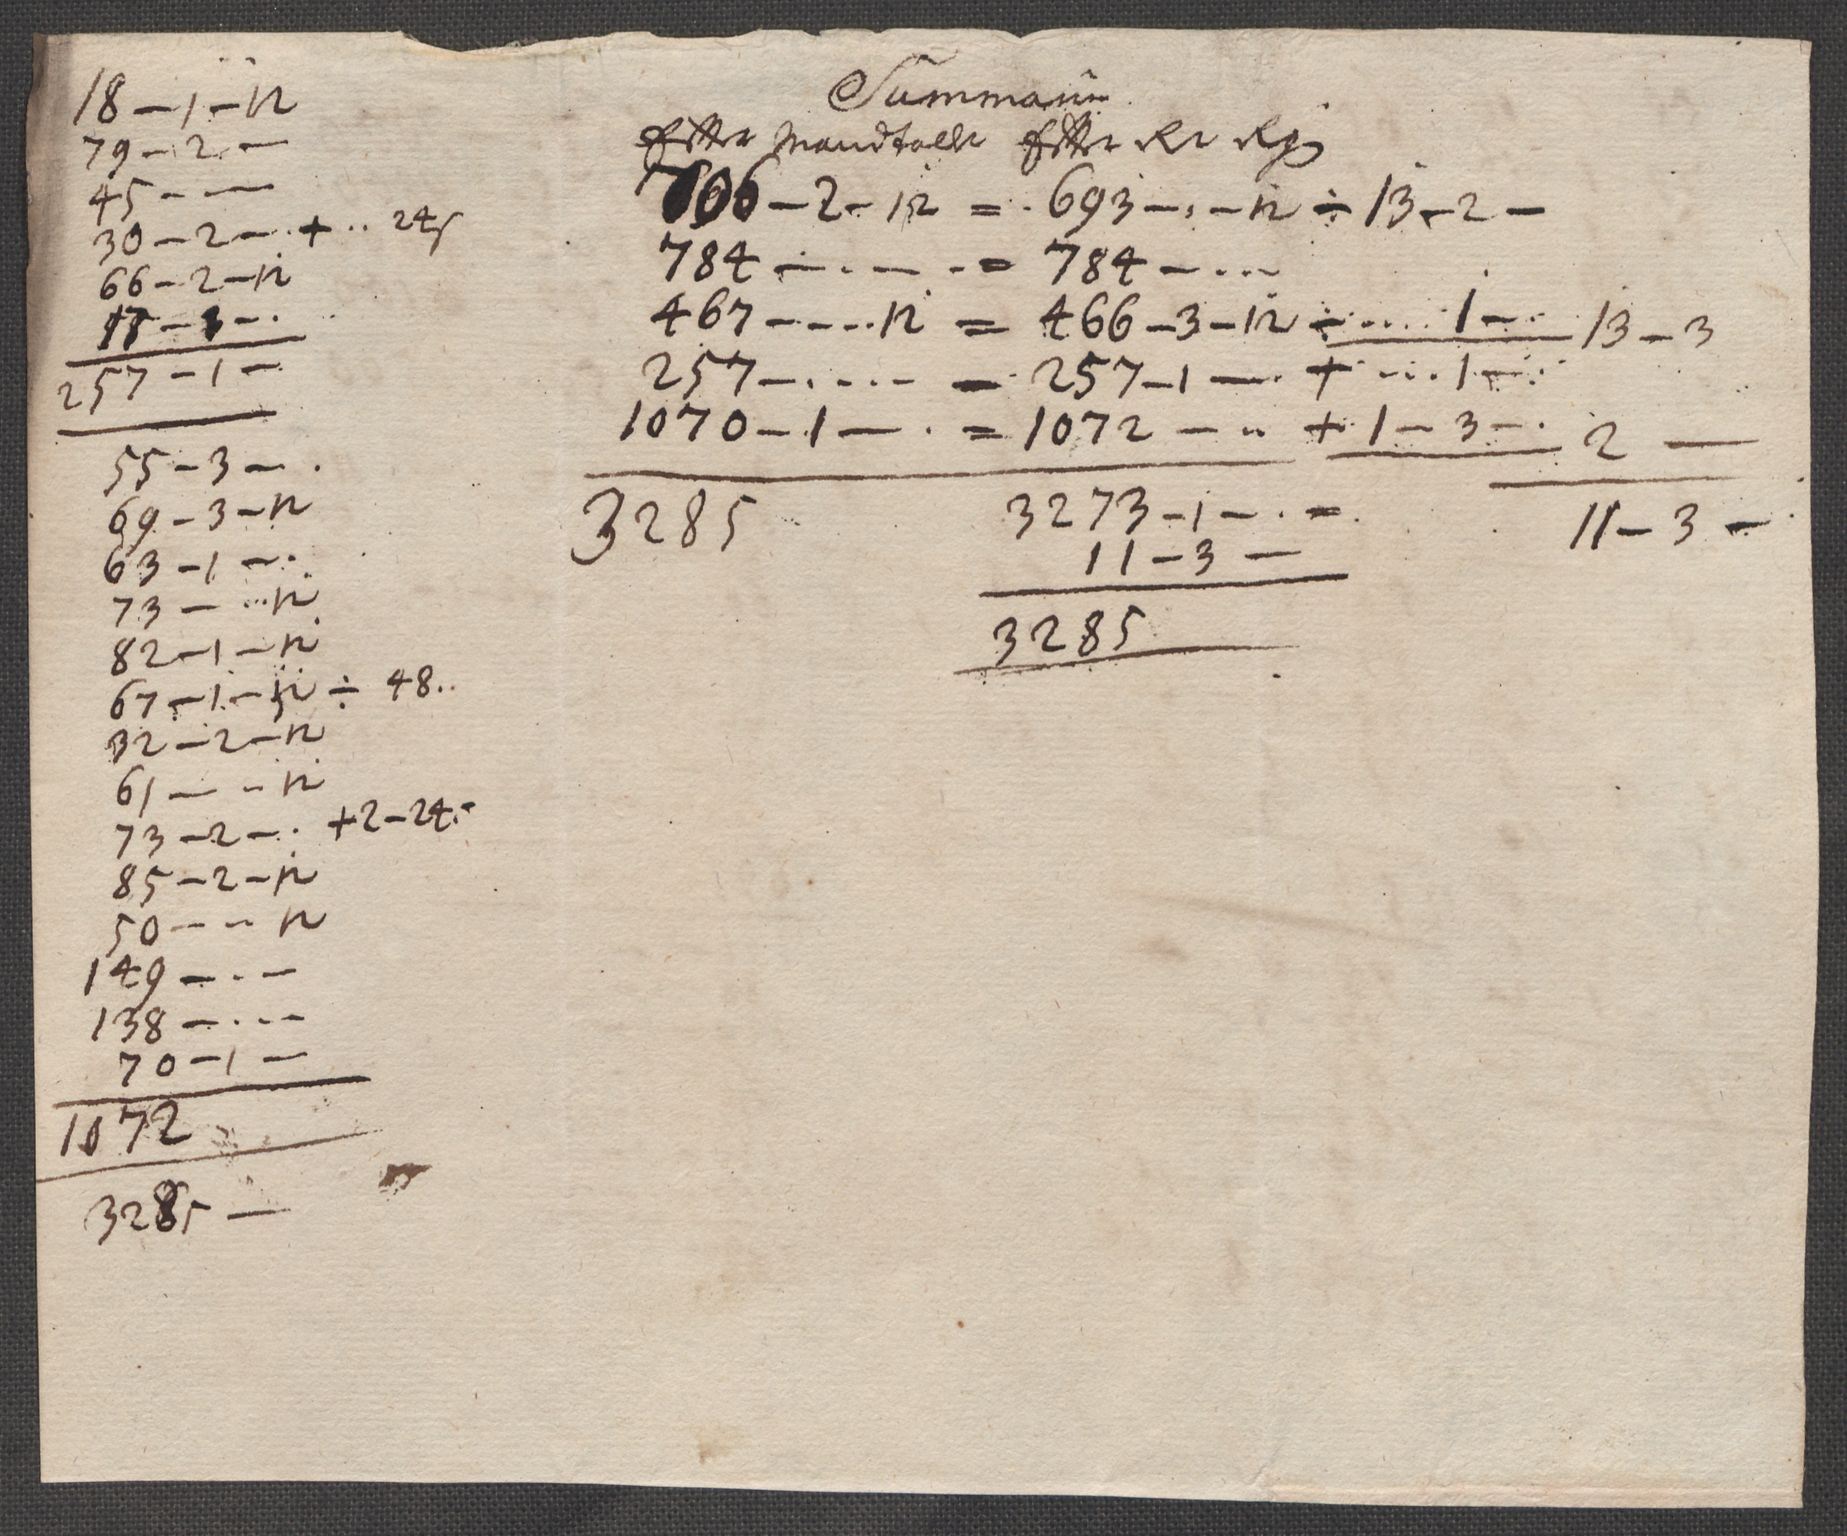 18 – 1 – 12
79 – 2 –
45 – –
30 – 2 – + .. 24
66 – 2 – 12
17 – 1 – .
257 – 1 –
55 – 3 – .
69 – 3 – 12
63 – 1 – .
73 – .. 12
82 – 1 – 12
67 – 1 – 12 ÷ 48..
32 – 2 – 12
61 – .. 12
73 – 2 – . + 2 – 24.
85 – 2 – 12
50 – .. 12
149 – . –
138 – . –
70 – 1 –
1072
3285 –
Summarum
Effter Mandtallet Effter
706 – 2 – 12 = 693 – . – 12 ÷ 13 – 2 –
784 – . – . = 784 – ...
467 – ... 12 = 466 – 3 – 12 ÷ .... 1 – . 13 – 3
257 – .... = 257 – 1 – . + ... 1 – .
1070 – 1 – . = 1072 – .. + 1 – 3 – . 2 –
3285 3273 – 1 – . = 11 – 3 –
11 – 3 –
3285